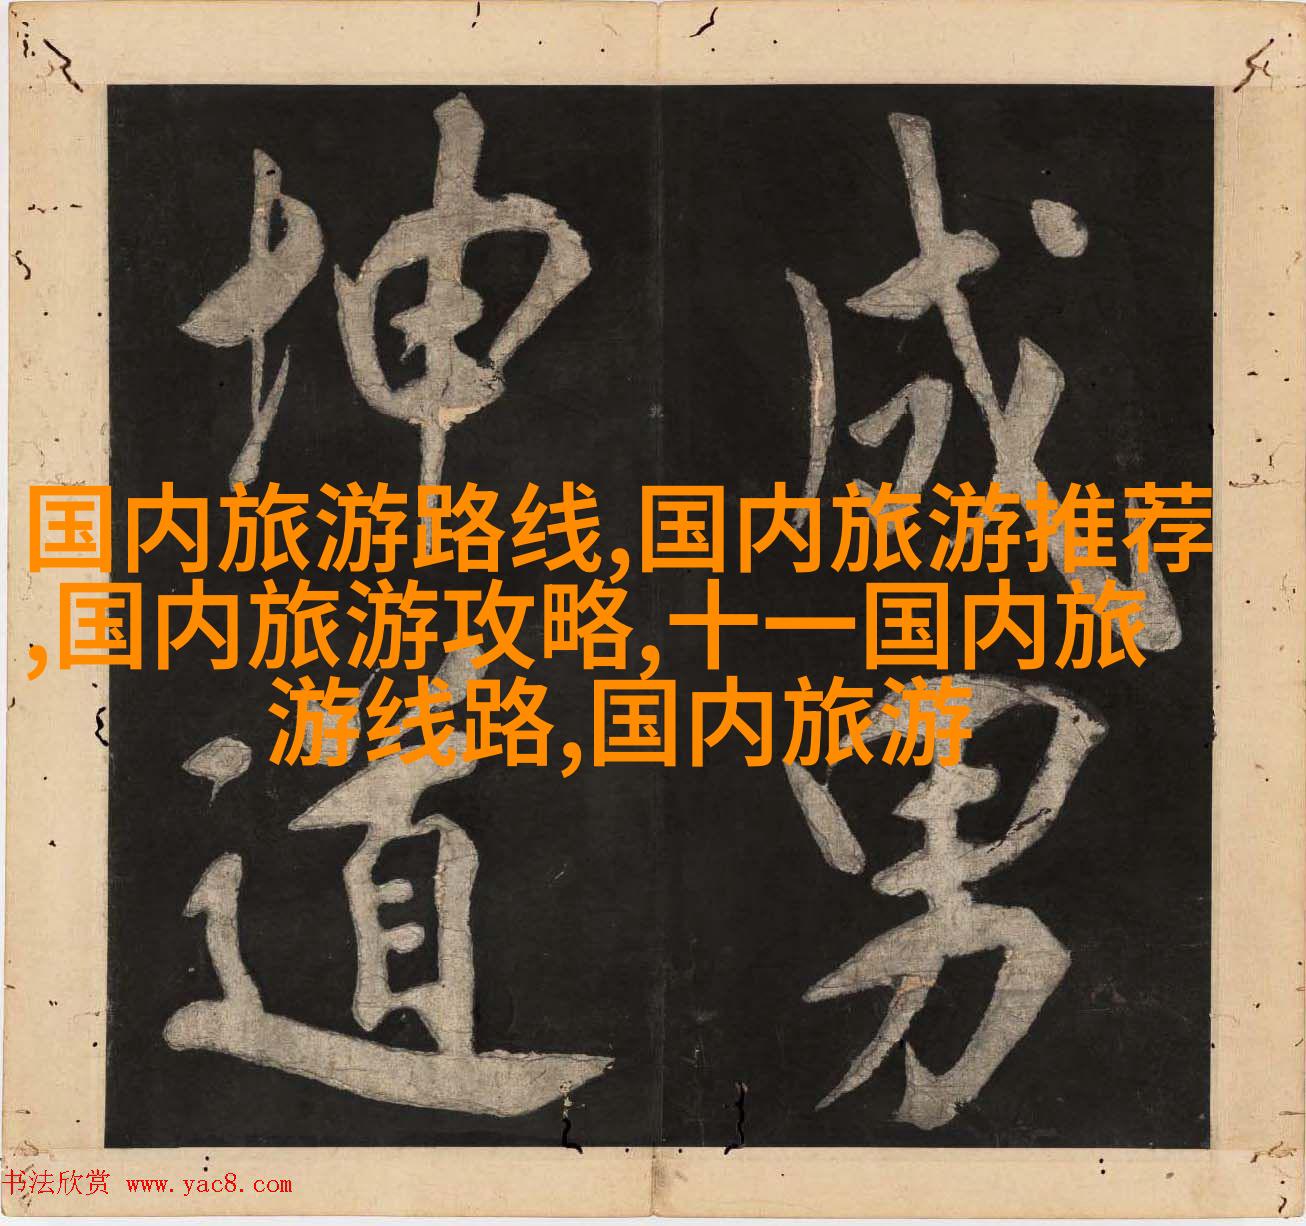 成男
坤道
国内旅游路线,国内旅游推荐
,国内旅游攻略,十一国内旅
游线路,国内旅游
书法欣赏 www.yac8.com